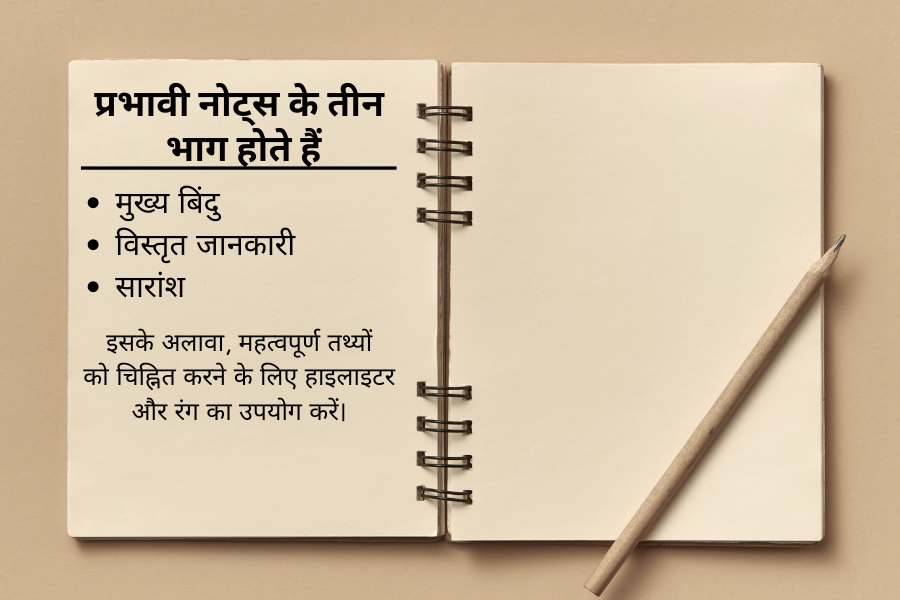 प्रभावी नोट्स के तीन
भाग होते हैं
• मुख्य बिंदु
• विस्तृत जानकारी
• सारांश
इसके अलावा, महत्वपूर्ण तथ्यों
को चिह्नित करने के लिए हाइलाइटर
और रंग का उपयोग करें।